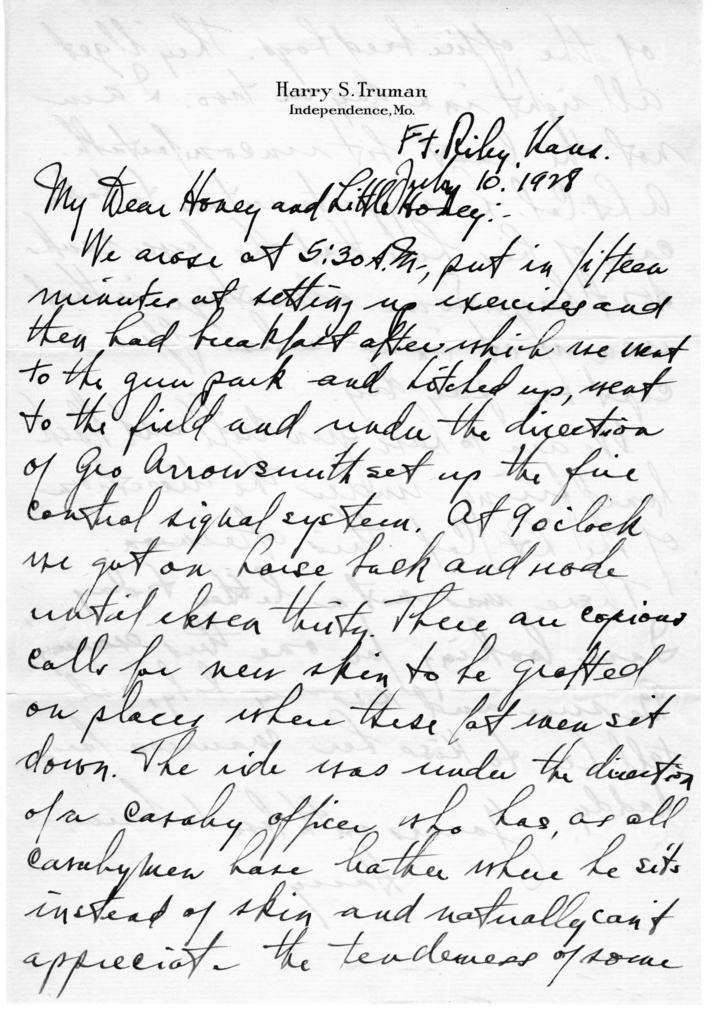 Harry S. Truman
Independence, Mo.
Ft. Riley, Kans.
July 10, 1928
My Dear Honey and Little Honey:-
We arose at 5:30 A.M., put in fifteen
minutes at setting up exercises and
then had breakfast after which we went
to the gun park and hitched up, went
to the field and under the direction
of Geo Arrowsmith set up the fire
control signal system. At 9 o'clock
we got on horse back and rode
until eleven thirty. There are copious
calls for new skin to be grafted
on places where these fat men sit
down. The ride was under the direction
of a cavalry officer who has, as all
cavalrymen have leather where he sits
instead of skin and naturally can't
appreciate the tenderness of some